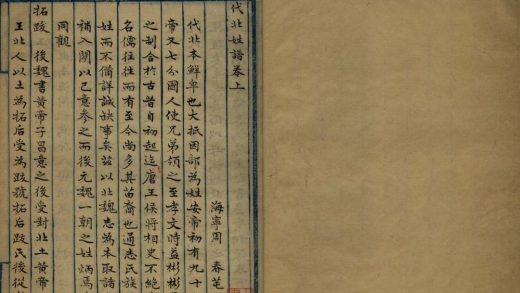 代北姓譜卷上
海寧周　春芚
代北本鮮卑也大抵因部為姓安帝初有九十
帝又七分國人使兄弟領之至孝文時益彬彬
之制合於古昔自初起迄唐王侯將相史不絶
名儒往往而有至今尚多其苗裔也通志氏族
姓而不備詳誠缺事矣茲以北魏志為本取諸
補入間以己意參之而後元魏一朝之姓炳焉
同觀
拓跋　後魏書黃帝子昌意之後受封北土黃帝
王北人以土為拓后受為跋號拓后跋氏後從